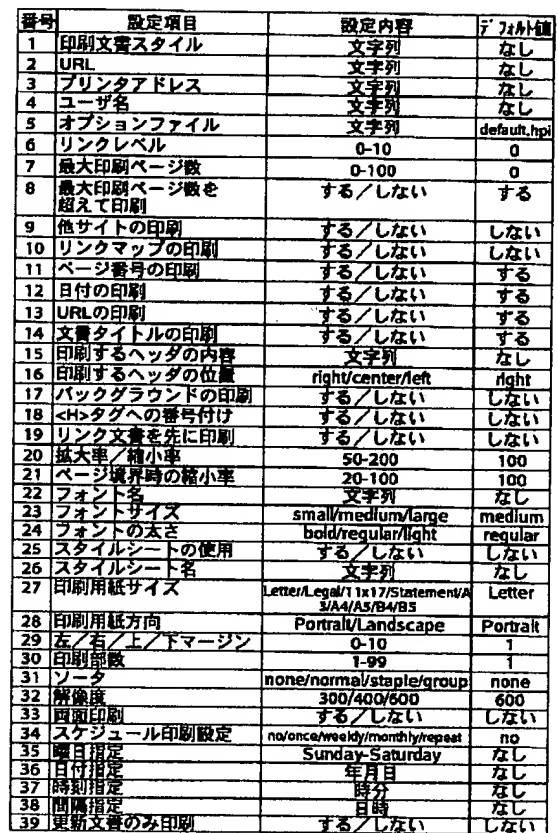 番号 設定項目 設定内容 デフォルト値
1 印刷文書スタイル 文字列 なし
2 URL 文字列 なし
3 プリンタアドレス 文字列 なし
4 ユーザ名 文字列 なし
5 オプションファイル 文字列 default.hpi
6 リンクレベル 0-10 0
7 最大印刷ページ数 0-100 0
8 最大印刷ページ数を する／しない する
超えて印刷
9 他サイトの印刷 する／しない しない
10 リンクマップの印刷 する／しない しない
11 ページ番号の印刷 する／しない する
12 日付の印刷 する／しない する
13 URLの印刷 する／しない する
14 文書タイトルの印刷 する／しない する
15 印刷するヘッダの内容 文字列 なし
16 印刷するヘッダの位置 right/center/left right
17 バックグラウンドの印刷 する／しない しない
18 <H>タグへの番号付け する／しない しない
19 リンク文書を先に印刷 する／しない しない
20 拡大率／縮小率 50-200 100
21 ページ境界時の縮小率 20-100 100
22 フォント名 文字列 なし
23 フォントサイズ small/medium/large medium
24 フォントの太さ bold/regular/light regular
25 スタイルシートの使用 する／しない しない
26 スタイルシート名 文字列 なし
27 印刷用紙サイズ Letter/Legal/11x17/Statement/A Letter
3/A4/A5/B4/B5
28 印刷用紙方向 Portrait/Landscape Portrait
29 左／右／上／下マージン 0-10 1
30 印刷部数 1-99 1
31 ソータ none/normal/staple/group none
32 解像度 300/400/600 600
33 両面印刷 する／しない しない
34 スケジュール印刷設定 no/once/weekly/monthly/repeat no
35 曜日指定 Sunday-Saturday なし
36 日付指定 年月日 なし
37 時刻指定 時分 なし
38 間隔指定 日時 なし
39 更新文書のみ印刷 する／しない しない